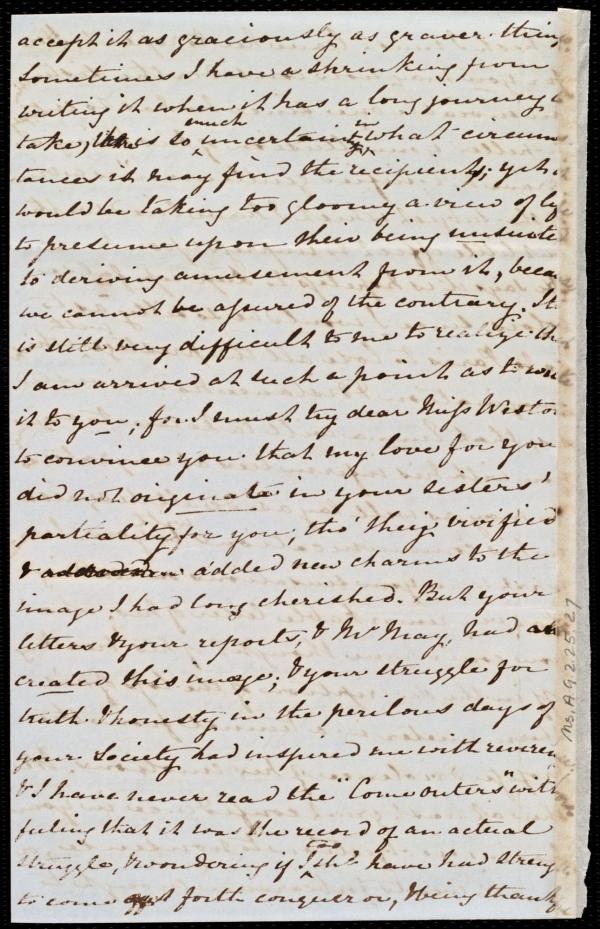 accept it as graciously as graver thing
Sometimes I have a shrinking from
writing it when it has a long journey
take, it is so much uncertain in what circum
tances it may find the recipients; yet
would be taking too gloomy a view of
to presume upon their being unsuite
to deriving amusement from it, beca
we cannot be assured of the contrary. It
is still very difficult to me to realize tha
I am arrived at such a point as to
it to you, for I must try dear Miss Westo
to convince you that my love for you
did not originate in your sisters'
partiality for you, tho' they vivified
& added new charms to the
image I had long cherished. But your
letters & your reports, & Mr May, had
created this image; & your struggle for
truth & honesty in the perilous days of
your Society had inspired me with reveren
& I have never read the "Come outers" with
feeling that it was the record of an actual
struggle, & wondering if I too shd have had streng
to come forth conqueror, & being thank
Ms. A. 9. 2. 25. 27